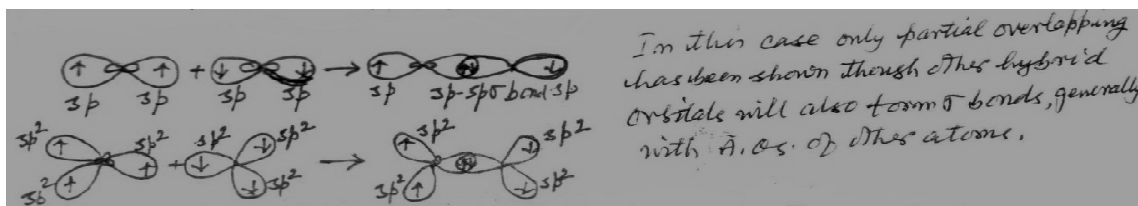 ↑ ↑ + ↓ ↓ → ↑ ↑↓ ↓
sp sp sp sp sp sp-spσ bond sp
sp² sp² sp² sp² sp² sp²
↑ ↑ + ↓ ↓ → ↑ ↑↓ ↓
sp² ↑ ↓ sp² sp² ↑ ↓ sp²
In this case only partial overlapping
has been shown though other hybrid
orbitals will also form σ bonds, generally
with A.Os. of other atoms.